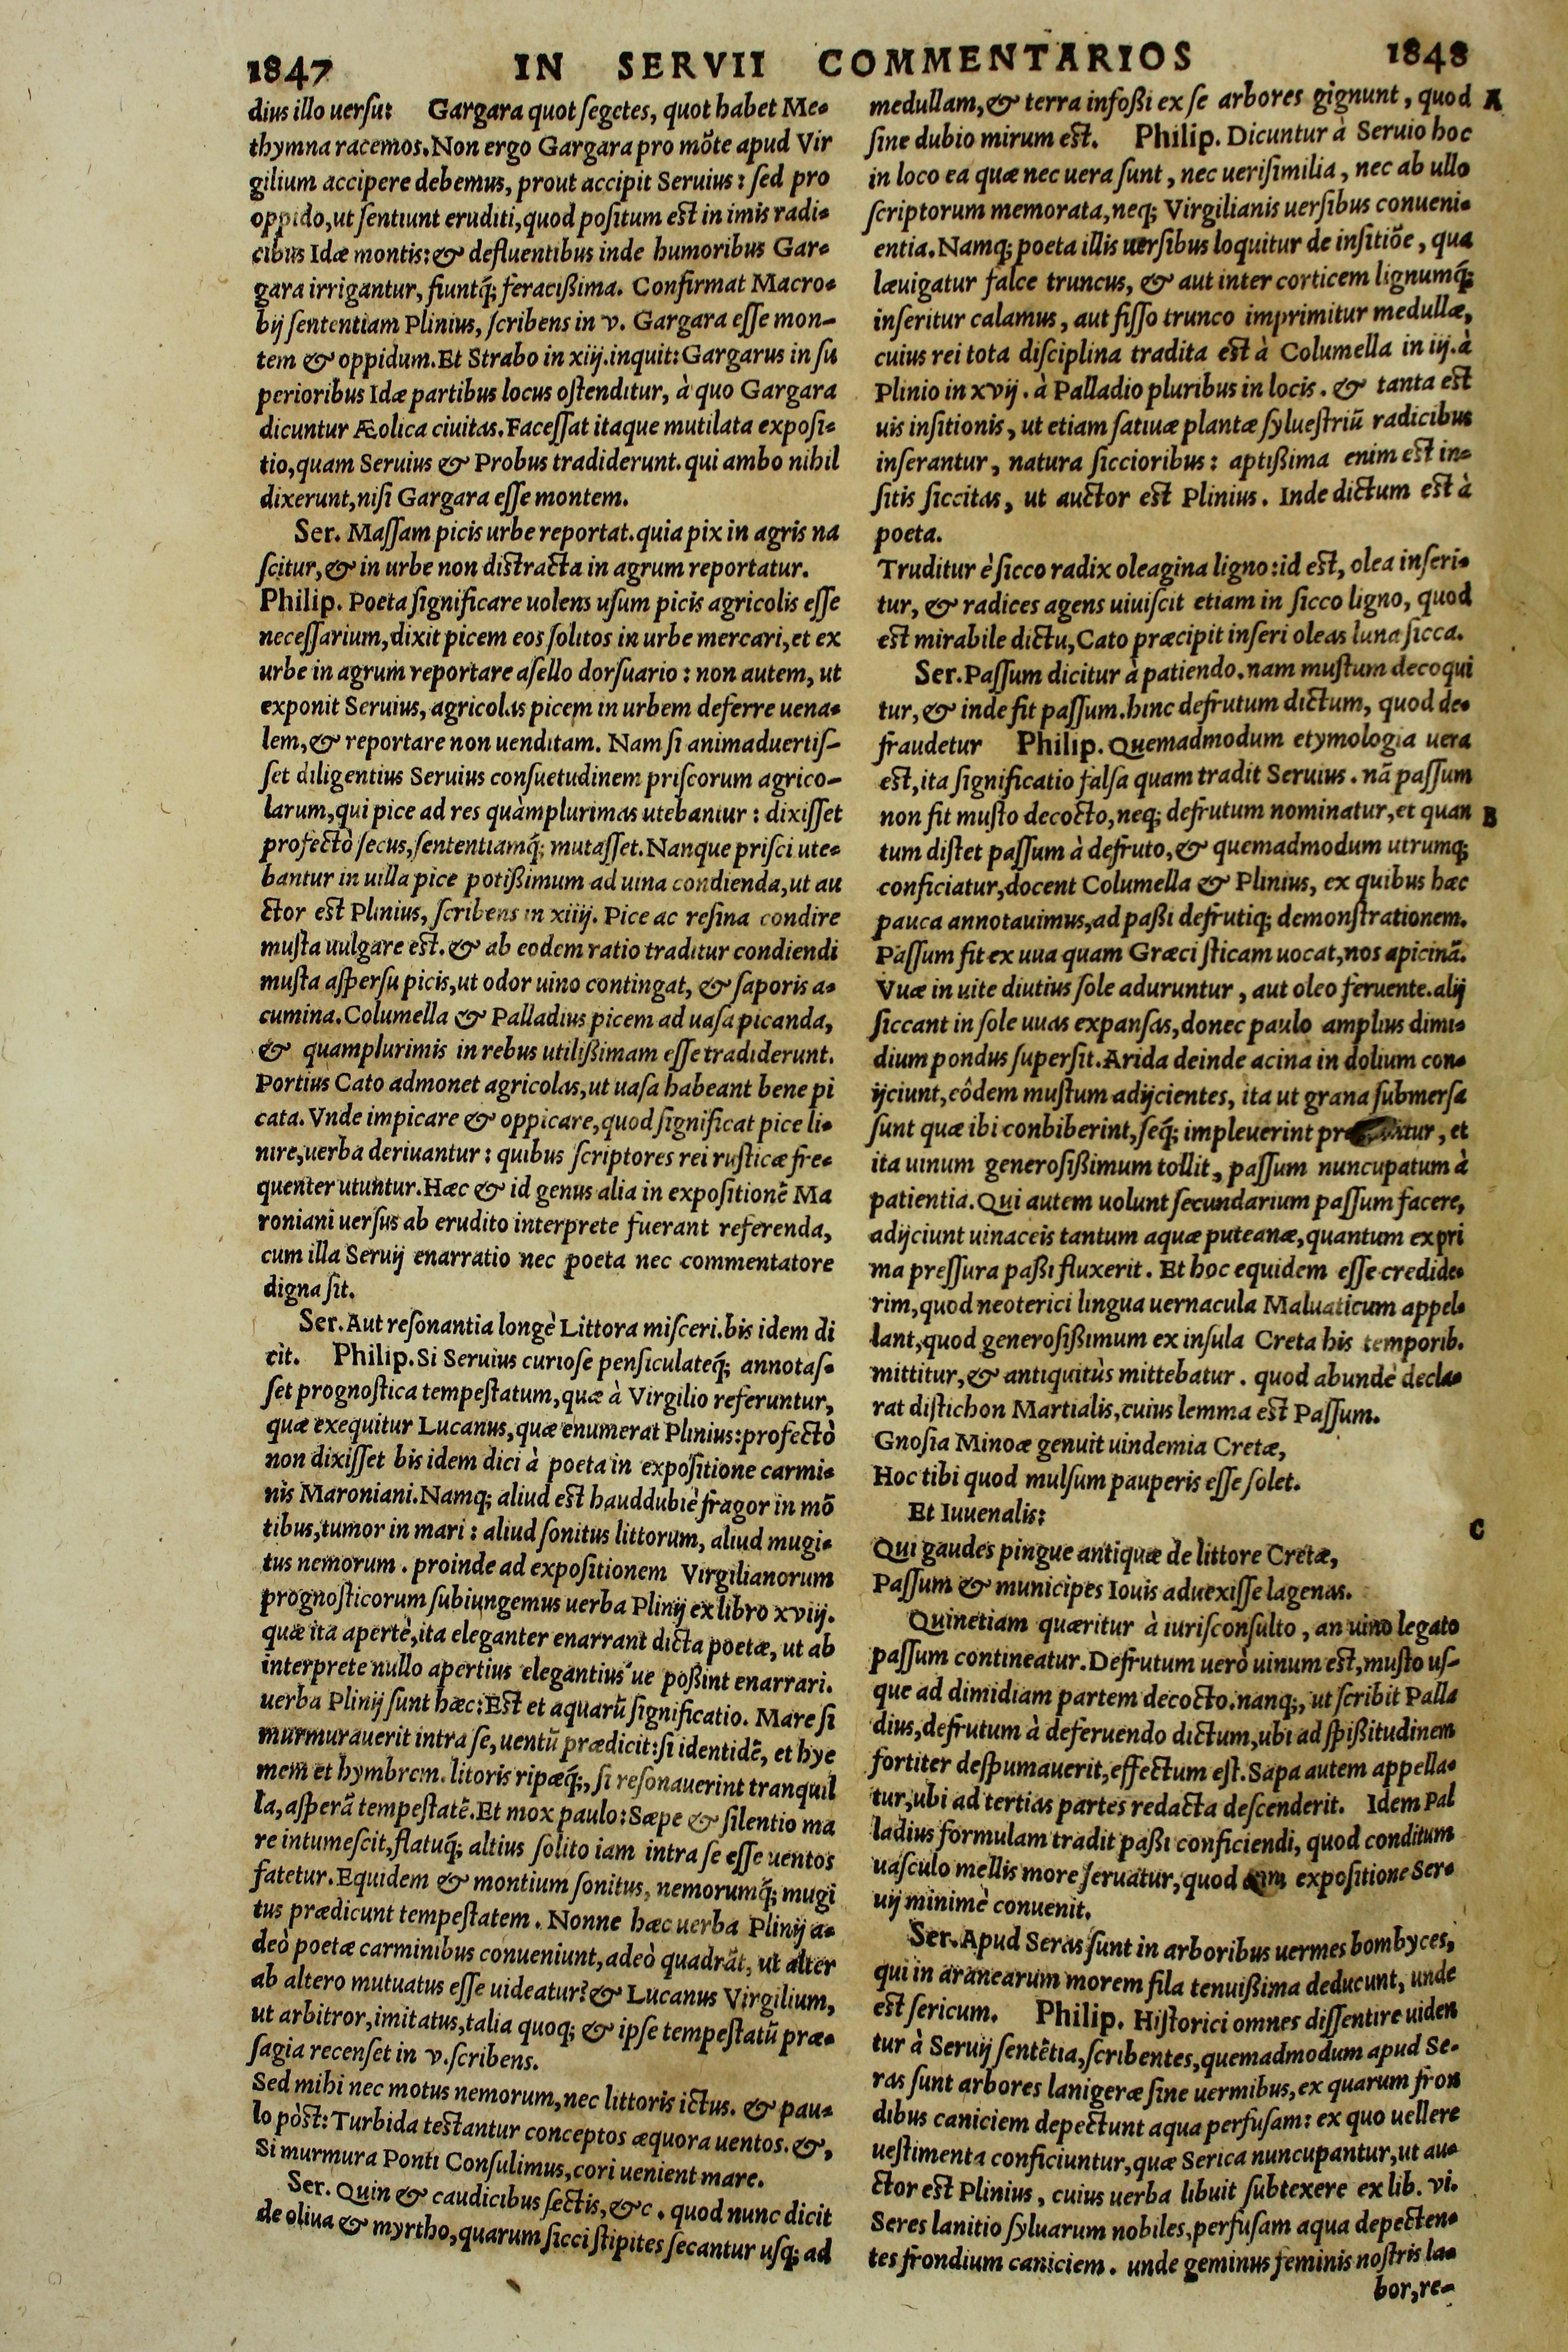 1847 IN SERVII COMMENTARIOS 1848
dius illo uersu: Gargara quot segetes, quot habet Me-
thymna racemos. Non ergo Gargara pro mõte apud Vir
gilium accipere debemus, prout accipit Seruius: sed pro
oppido, ut sentiunt eruditi, quod positum est in imis radi-
cibus Idæ montis: & defluentibus inde humoribus Gar-
gara irrigantur, fiuntq́; feracißima. Confirmat Macro-
bij sententiam Plinius, scribens in v. Gargara esse mon-
tem & oppidum. Et Strabo in xiij. inquit: Gargarus in su
perioribus Idæ partibus locus ostenditur, à quo Gargara
dicuntur Æolica ciuitas. Facessat itaque mutilata exposi-
tio, quam Seruius & Probus tradiderunt. qui ambo nihil
dixerunt, nisi Gargara esse montem.
Ser. Massam picis urbe reportat. quia pix in agris na
scitur, & in urbe non distracta in agrum reportatur.
Philip. Poeta significare uolens usum picis agricolis esse
necessarium, dixit picem eos solitos in urbe mercari, et ex
urbe in agrum reportare asello dorsuario: non autem, ut
exponit Seruius, agricolas picem in urbem deferre uena-
lem, & reportare non uenditam. Nam si animaduertis-
set diligentius Seruius consuetudinem priscorum agrico-
larum, qui pice ad res quàmplurimas utebantur: dixisset
profectò secus, sententiamq́; mutasset. Nanque prisci ute-
bantur in uilla pice potißimum ad uina condienda, ut au
ctor est Plinius, scribens in xiiij. Pice ac resina condire
musta uulgare est. & ab eodem ratio traditur condiendi
musta aspersu picis, ut odor uino contingat, & saporis a-
cumina. Columella & Palladius picem ad uasa picanda,
& quamplurimis in rebus utilißimam esse tradiderunt.
Portius Cato admonet agricolas, ut uasa habeant bene pi
cata. Vnde impicare & oppicare, quod significat pice li-
nire, uerba deriuantur: quibus scriptores rei rusticæ fre-
quenter utuntur. Hæc & id genus alia in expositionẽ Ma
roniani uersus ab erudito interprete fuerant referenda,
cum illa Seruij enarratio nec poeta nec commentatore
digna sit.
Ser. Aut resonantia longè Littora misceri. bis idem di
cit. Philip. Si Seruius curiose pensiculateq́; annotas-
set prognostica tempestatum, quæ à Virgilio referuntur,
quæ exequitur Lucanus, quæ enumerat Plinius: profectò
non dixisset bis idem dici à poeta in expositione carmi-
nis Maroniani. Namq; aliud est hauddubiè fragor in mõ
tibus, tumor in mari: aliud sonitus littorum, aliud mugi-
tus nemorum. proinde ad expositionem Virgilianorum
prognosticorum subiungemus uerba Plinij ex libro xviij.
quæ ita apertè, ita eleganter enarrant dicta poetæ, ut ab
interprete nullo apertius elegantius'ue poßint enarrari.
uerba Plinij sunt hæc: Est et aquarũ significatio. Mare si
murmurauerit intra se, uentũ prædicit: si identidẽ, et hye
mem et hymbrem. litoris ripæq́;, si resonauerint tranquil
la, asperã tempestatẽ. Et mox paulo: Sæpe & silentio ma
re intumescit, flatuq́; altius solito iam intra se esse uentos
fatetur. Equidem & montium sonitus, nemorumq́; mugi
tus prædicunt tempestatem. Nonne hæc uerba Plinij a-
deò poetæ carminibus conueniunt, adeò quadrãt, ut alter
ab altero mutuatus esse uideatur? & Lucanus Virgilium,
ut arbitror, imitatus, talia quoq; & ipse tempestatũ præ-
sagia recenset in v. scribens.
Sed mihi nec motus nemorum, nec littoris ictus. & pau-
lo pòst: Turbida testantur conceptos æquora uentos. &,
Si murmura Ponti Consulimus, cori uenient mare.
Ser. Quin & caudicibus sectis, &c. quod nunc dicit
de oliua & myrtho, quarum sicci stipites secantur usq; ad
medullam, & terra infoßi ex se arbores gignunt, quod A
sine dubio mirum est. Philip. Dicuntur à Seruio hoc
in loco ea quæ nec uera sunt, nec uerisimilia, nec ab ullo
scriptorum memorata, neq; Virgilianis uersibus conueni-
entia. Namq; poeta illis uersibus loquitur de insitiõe, qua
læuigatur falce truncus, & aut inter corticem lignumq́;
inseritur calamus, aut fisso trunco imprimitur medullæ,
cuius rei tota disciplina tradita est à Columella in iij. à
Plinio in xvij. à Palladio pluribus in locis. & tanta est
uis insitionis, ut etiam satiuæ plantæ syluestriũ radicibus
inserantur, natura siccioribus: aptißima enim est in-
sitis siccitas, ut auctor est Plinius. Inde dictum est à
poeta.
Truditur è sicco radix oleagina ligno: id est, olea inseri-
tur, & radices agens uiuiscit etiam in sicco ligno, quod
est mirabile dictu, Cato præcipit inseri oleas luna sicca.
Ser. Passum dicitur à patiendo. nam mustum decoqui
tur, & inde fit passum. hinc defrutum dictum, quod de-
fraudetur Philip. Quemadmodum etymologia uera
est, ita significatio falsa quam tradit Seruius. nã passum
non fit musto decocto, neq; defrutum nominatur, et quan B
tum distet passum à defruto, & quemadmodum utrumq;
conficiatur, docent Columella & Plinius, ex quibus hæc
pauca annotauimus, ad paßi defrutiq; demonstrationem.
Passum fit ex uua quam Græci sticam uocat, nos apicinã.
Vuæ in uite diutius sole aduruntur, aut oleo feruente. alij
siccant in sole uuas expansas, donec paulo amplius dimi-
dium pondus supersit. Arida deinde acina in dolium con-
ijciunt, eôdem mustum adijcientes, ita ut grana submersa
sunt quæ ibi conbiberint, seq́; impleuerint , et
ita uinum generosißimum tollit, passum nuncupatum à
patientia. Qui autem uolunt secundarium passum facere,
adijciunt uinaceis tantum aquæ puteanæ, quantum ex pri
ma pressura paßi fluxerit. Et hoc equidem esse credide-
rim, quod neoterici lingua uernacula Maluaticum appel-
lant, quod generosißimum ex insula Creta his temporib.
mittitur, & antiquitùs mittebatur. quod abundè decla-
rat distichon Martialis, cuius lemma est Passum.
Gnosia Minoæ genuit uindemia Cretæ,
Hoc tibi quod mulsum pauperis esse solet.
Et Iuuenalis:
C
Qui gaudes pingue antiquæ de littore Cretæ,
Passum & municipes Iouis aduexisse lagenas.
Quinetiam quæritur à iurisconsulto, an uino legato
passum contineatur. Defrutum uerò uinum est, musto us-
que ad dimidiam partem decocto. nanq;, ut scribit Palla
dius, defrutum à deferuendo dictum, ubi ad spißitudinem
fortiter despumauerit, effectum est. Sapa autem appella-
tur, ubi ad tertias partes redacta descenderit. Idem Pal
ladius formulam tradit paßi conficiendi, quod conditum
uasculo mellis more seruatur, quod cum expositione Ser-
uij minimè conuenit.
Ser. Apud Seras sunt in arboribus uermes bombyces,
qui in aranearum morem fila tenuißima deducunt, unde
est sericum. Philip. Historici omnes dissentire uiden
tur à Seruij sentẽtia, scribentes, quemadmodum apud Se-
ras sunt arbores lanigeræ sine uermibus, ex quarum fron
dibus caniciem depectunt aqua perfusam: ex quo uellere
uestimenta conficiuntur, quæ Serica nuncupantur, ut au-
ctor est Plinius, cuius uerba libuit subtexere ex lib. vi.
Seres lanitio syluarum nobiles, perfusam aqua depecten-
tes frondium caniciem. unde geminus feminis nostris la-
bor, re-